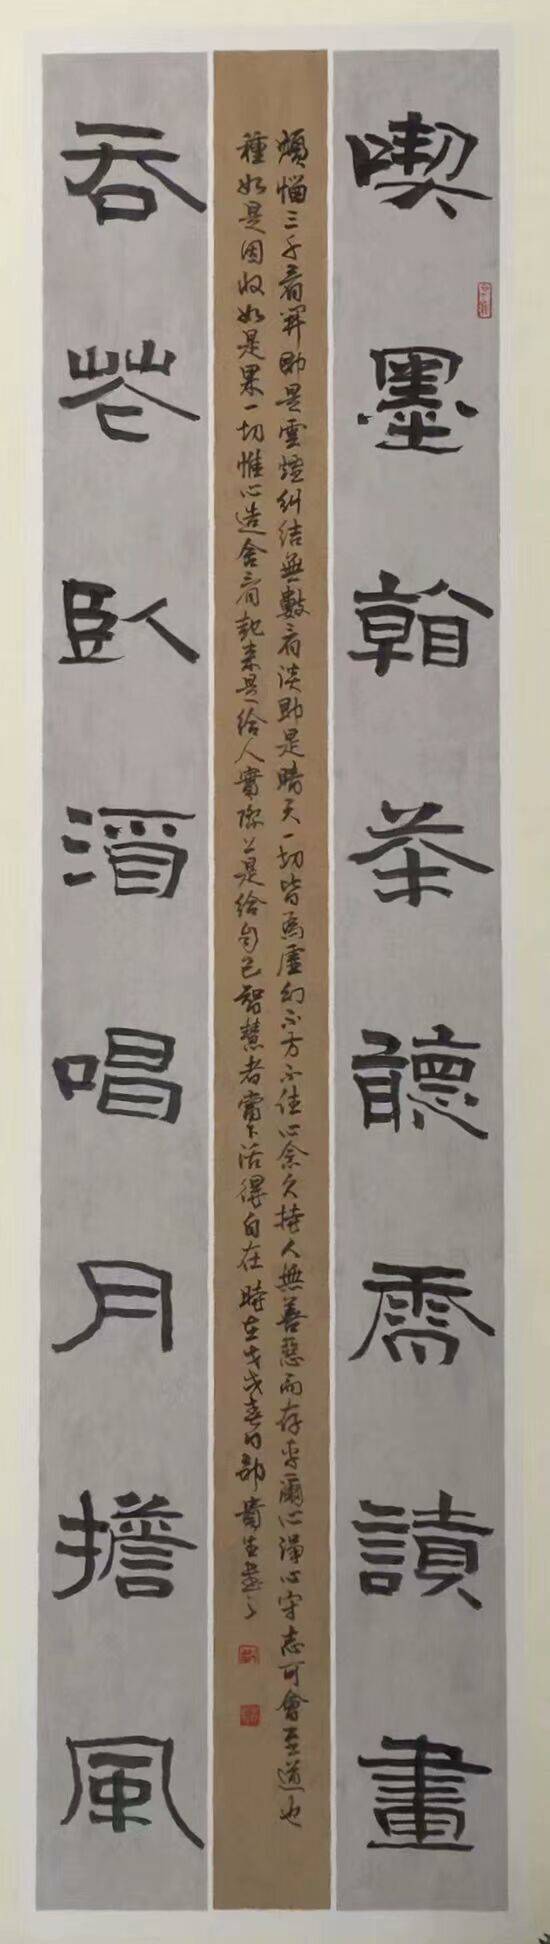 喫墨看茶聽雨讀畫
煩惱三千看開即是雲煙糾結無數看淡即是晴天一切皆為虛幻不方不住心念久持人無善惡而存乎爾心澤心守志可會至道也
種如是因收如是果一切惟心造舍看起來是給人實際上是給自己智慧者當下活得自在時在戊戌春日貴生書之
吞花臥酒唱月擔風